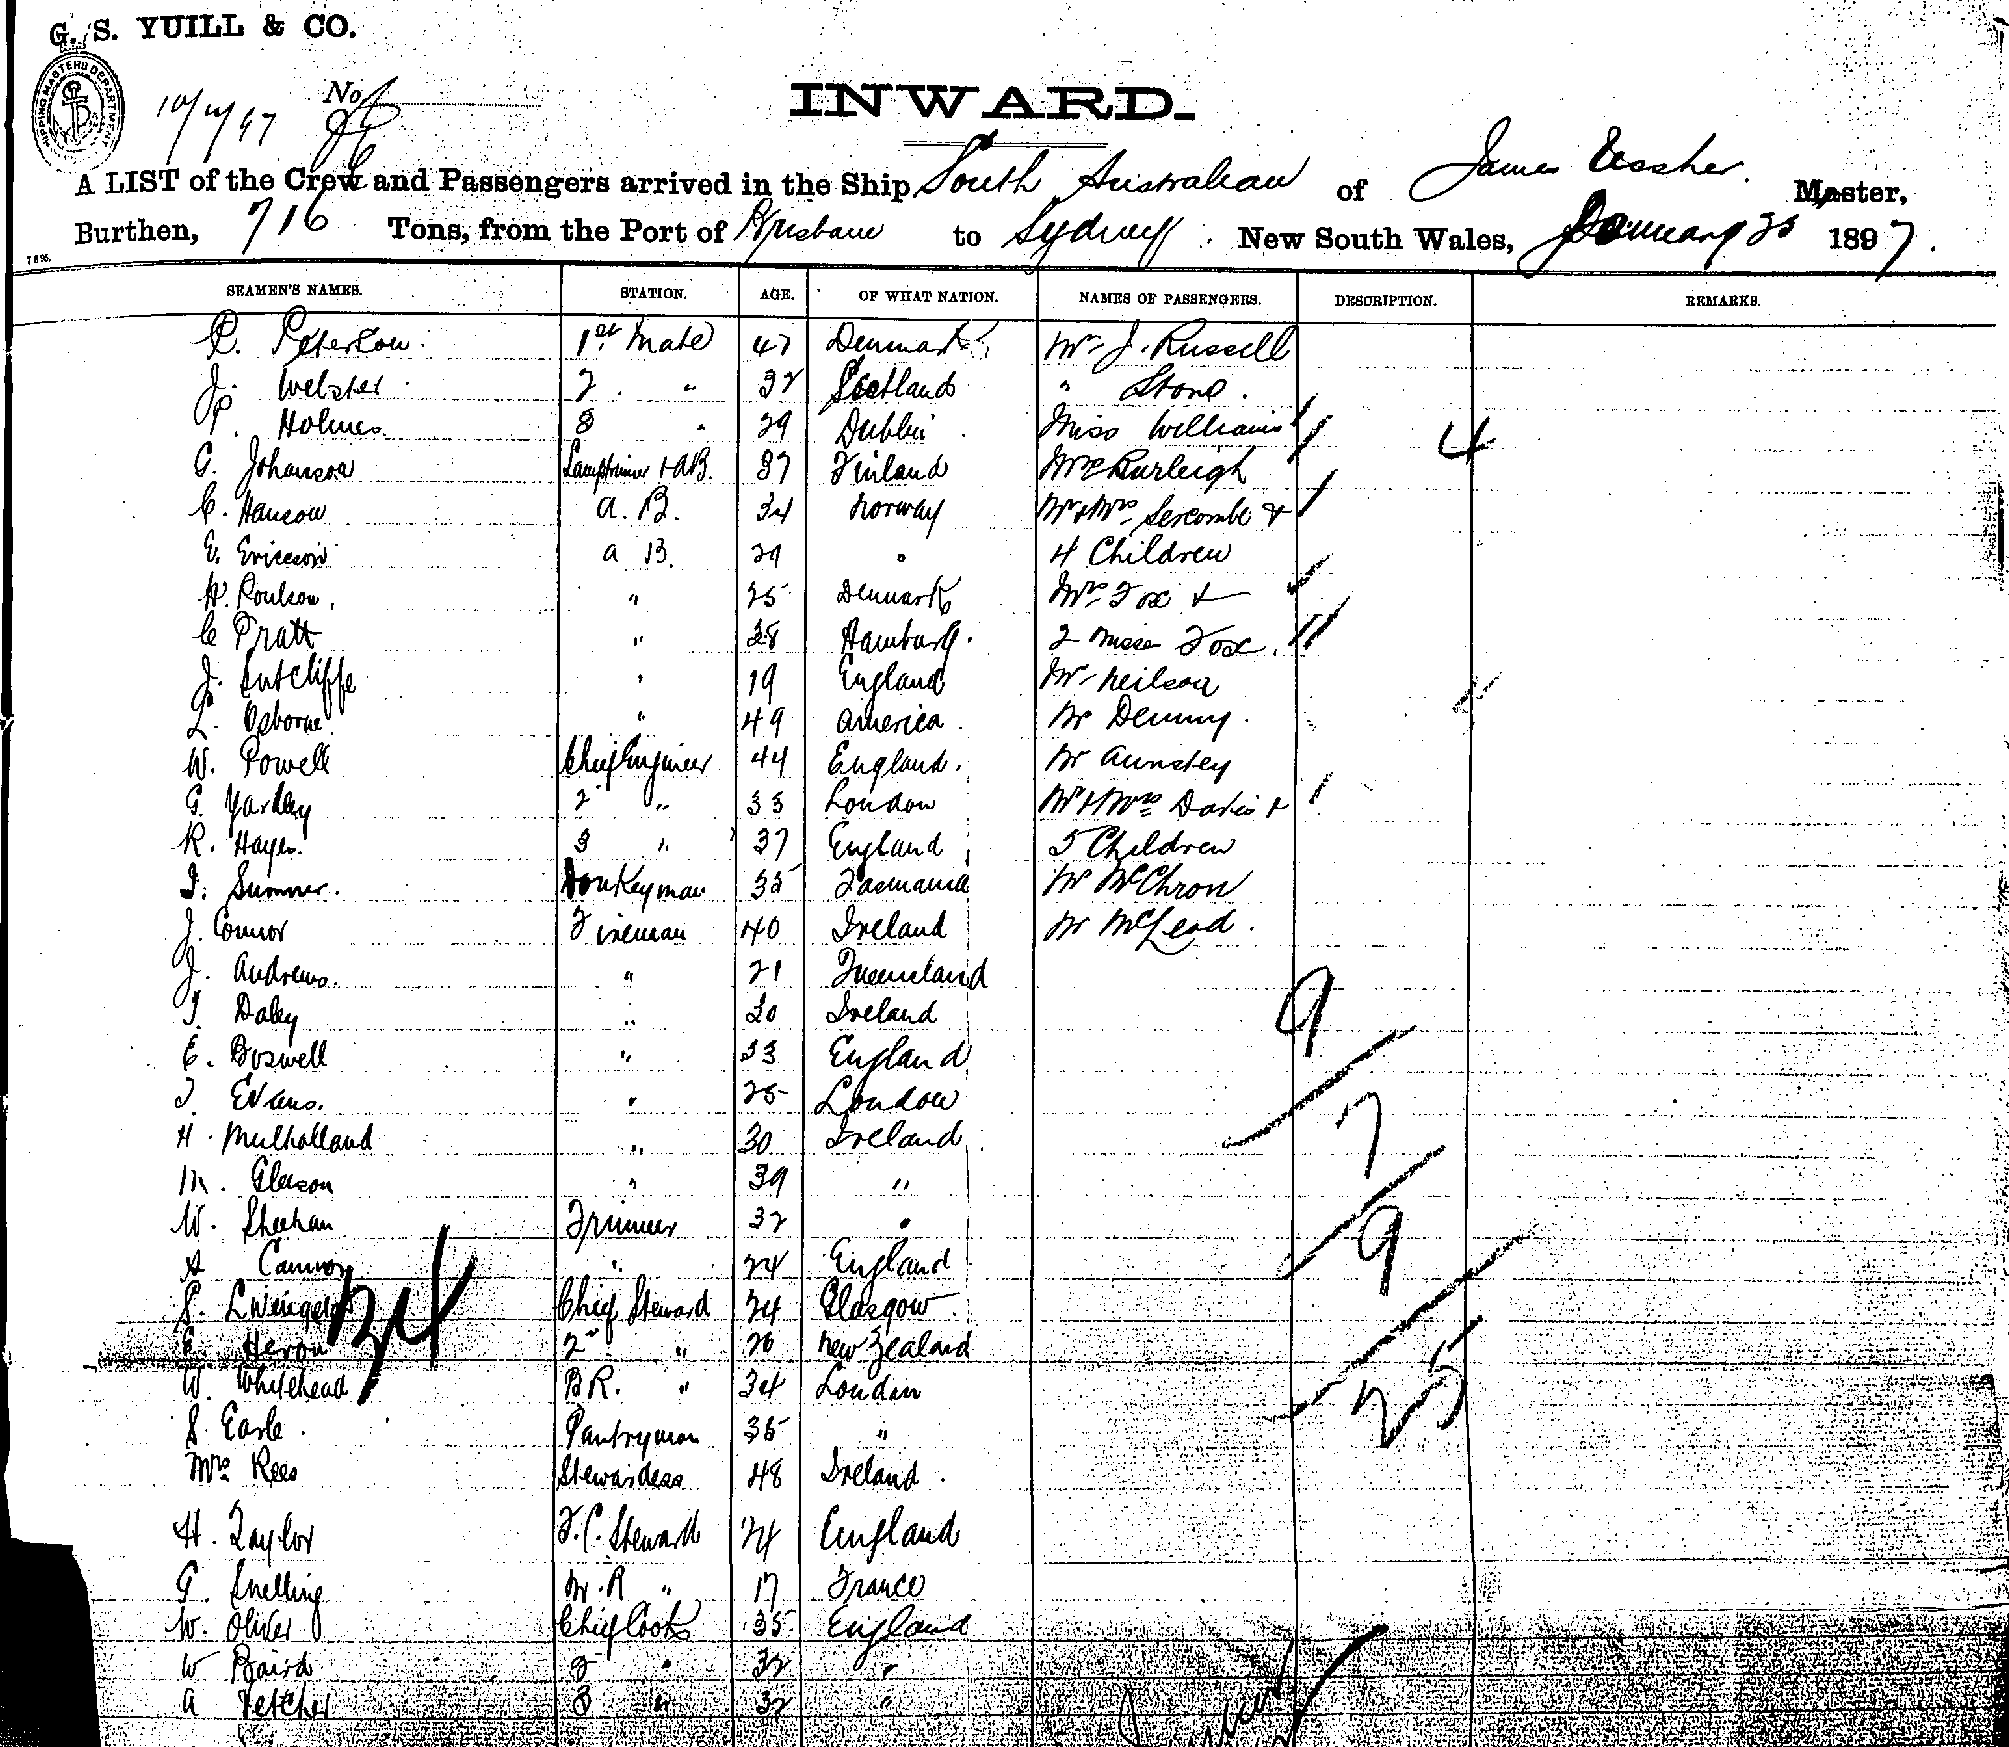 G. S. YUILL & CO.
SHIPPING MASTERS DEPARTMENT
No
INWARD.
A LIST of the Crew and Passengers arrived in the Ship South Australian of James Ussher. Master,
Burthen, 716 Tons, from the Port of Brisbane to Sydney. New South Wales, January 1897.
SEAMEN'S NAMES. STATION. AGE. OF WHAT NATION. NAMES OF PASSENGERS. DESCRIPTION. REMARKS.
Peterson. 1st Mate 47 Denmark Mr J. Russell
J. Webster. 2 " 32 Scotland " Stone.
P. Holmes. 3 " 29 Dublin Miss Williams
C. Johanson Lamptrimer + AB. 37 Finland Burleigh 4
C. Hanson A. B. 34 Norway Mr + Mrs Sercombe +
E. Ericson A B. 29 " 4 Children
H. Poulson. " 25 Denmark Mrs Fox +
C Pratt " 28 Hamburg. 2 Misses Fox.
J. Sutcliffe " 19 England Mr Neilson
L. Osborne " 49 America. Mr Denny.
W. Powell Chief Engineer 44 England. Mr Aunstey
G. Yardley 2 " 33 London Mr + Mrs Davis +
R. Hayes. 3 " 37 England 5 Children
Sumner. Donkeyman 35 Tasmania Mr McChron
J. Connor Fireman 40 Ireland Mr McLeod.
J. Andrews. " 21 Queensland
T. Daley " 20 Ireland 9
E. Boswell " 33 England
T. Evans. " 25 London 7
H. Mulholland " 30 Ireland
M. Gleeson " 39 "
W. Sheehan Trimmer 32 " 9
A " 24 England
34
S. Chief Steward 24 Glasgow.
E. Heron 2 " 26 New Zealand
W. Whitehead BR. " 34 London 25
S. Earle. Pantryman 35 "
Mrs Rees Stewardess 48 Ireland.
H. Taylor F.C. Steward 24 England
G. Snelling M.R " 17 France
W. Oliver Chief Cook 35 England
W Baird 2 " 32 "
A Fetcher 3 " 32 "